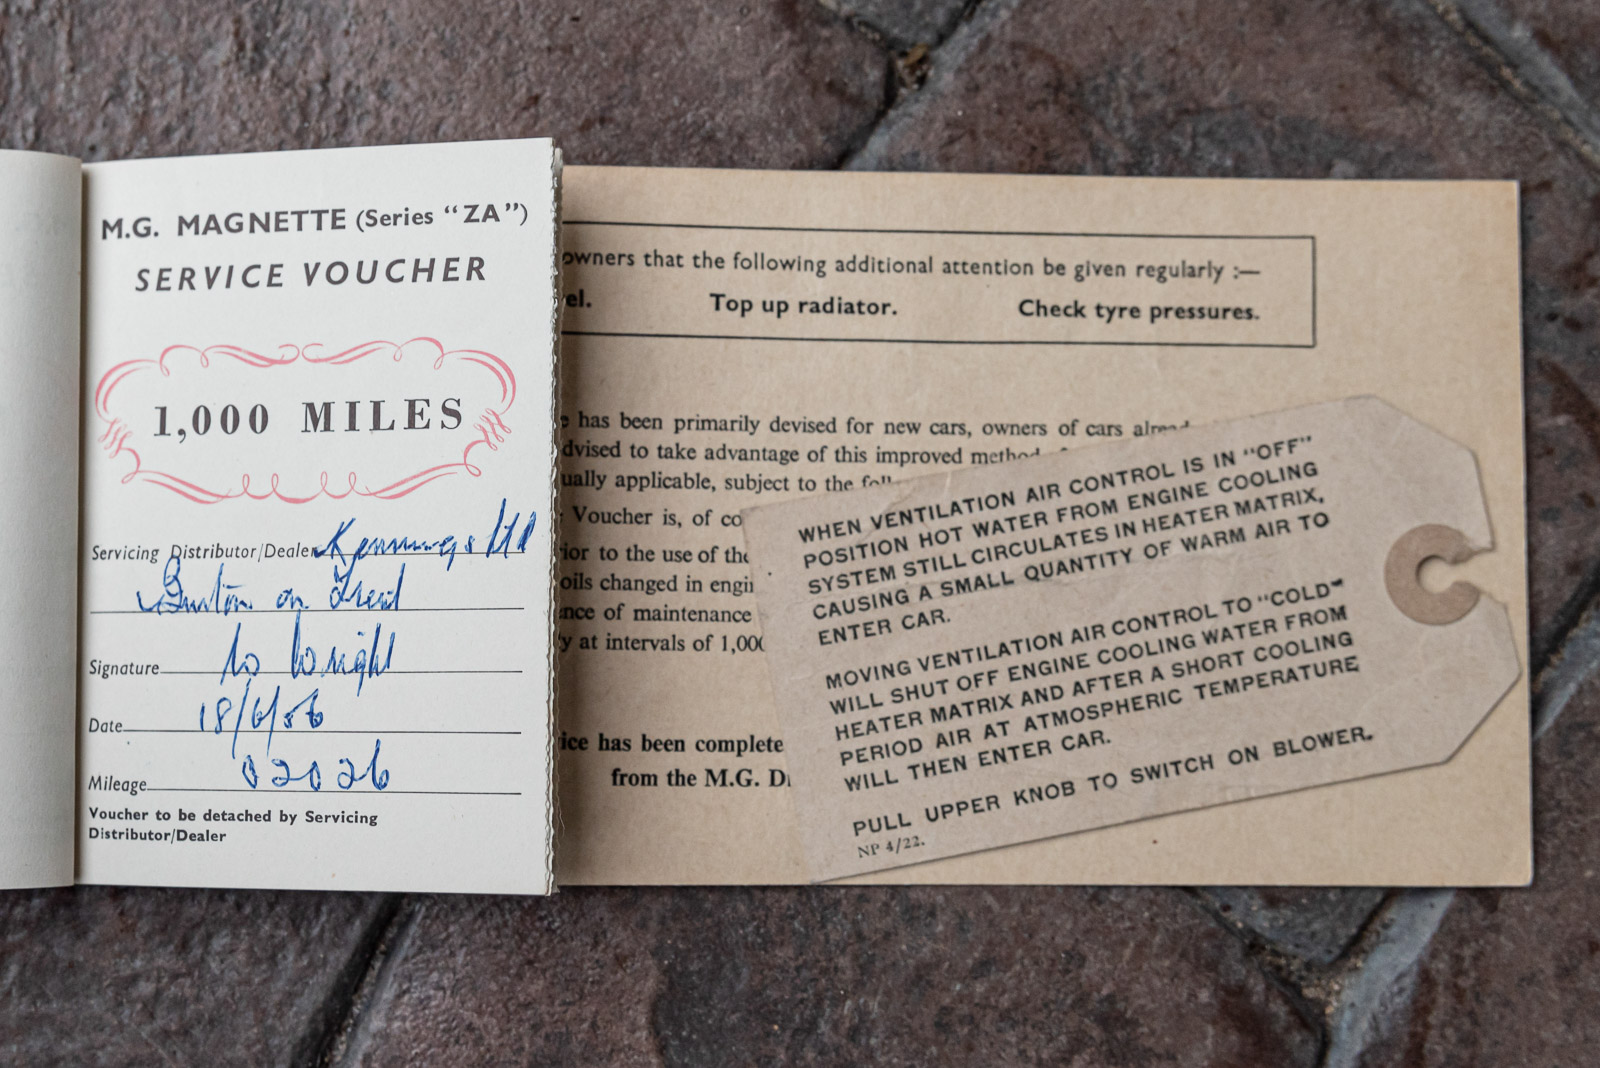 M.G. MAGNETTE (Series "ZA")
SERVICE VOUCHER
1,000 MILES
Servicing Distributor/Dealer Kennings Ltd
Burton on Trent
Signature W Wright
Date 18/6/56
Mileage 02026
Voucher to be detached by Servicing
Distributor/Dealer
owners that the following additional attention be given regularly :—
el. Top up radiator. Check tyre pressures.
has been primarily devised for new cars, owners of cars
dvised to take advantage of this improved
ually applicable, subject to the
Voucher is, of co
ior to the use of the
oils changed in engi
nce of maintenance
y at intervals of 1,000
ice has been complete
from the M.G. D
WHEN VENTILATION AIR CONTROL IS IN "OFF"
POSITION HOT WATER FROM ENGINE COOLING
SYSTEM STILL CIRCULATES IN HEATER MATRIX,
CAUSING A SMALL QUANTITY OF WARM AIR TO
ENTER CAR.
MOVING VENTILATION AIR CONTROL TO "COLD"
WILL SHUT OFF ENGINE COOLING WATER FROM
HEATER MATRIX AND AFTER A SHORT COOLING
PERIOD AIR AT ATMOSPHERIC TEMPERATURE
WILL THEN ENTER CAR.
PULL UPPER KNOB TO SWITCH ON BLOWER.
NP 4/22.